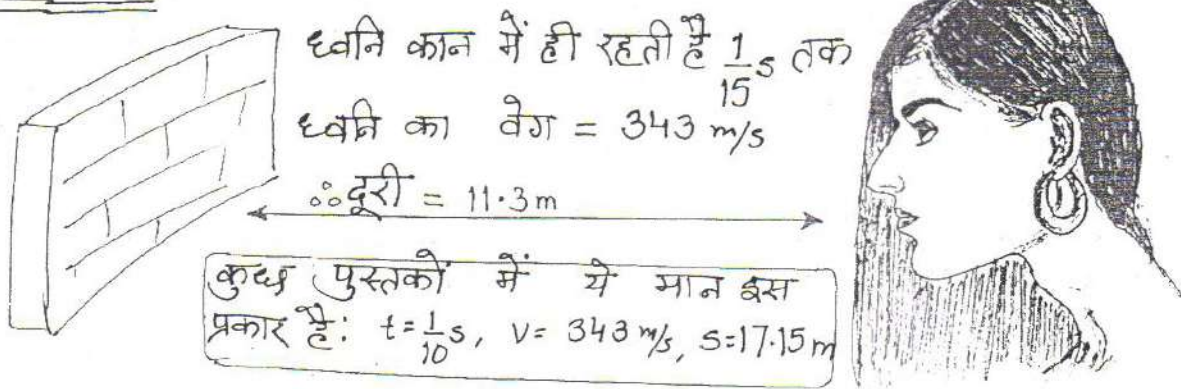 ध्वनि कान में ही रहती है 1/15 s तक
ध्वनि का वेग = 343 m/s
∴ दूरी = 11.3 m
कुछ पुस्तकों में ये मान इस
प्रकार है: t = 1/10 s, v = 343 m/s, s = 17.15 m